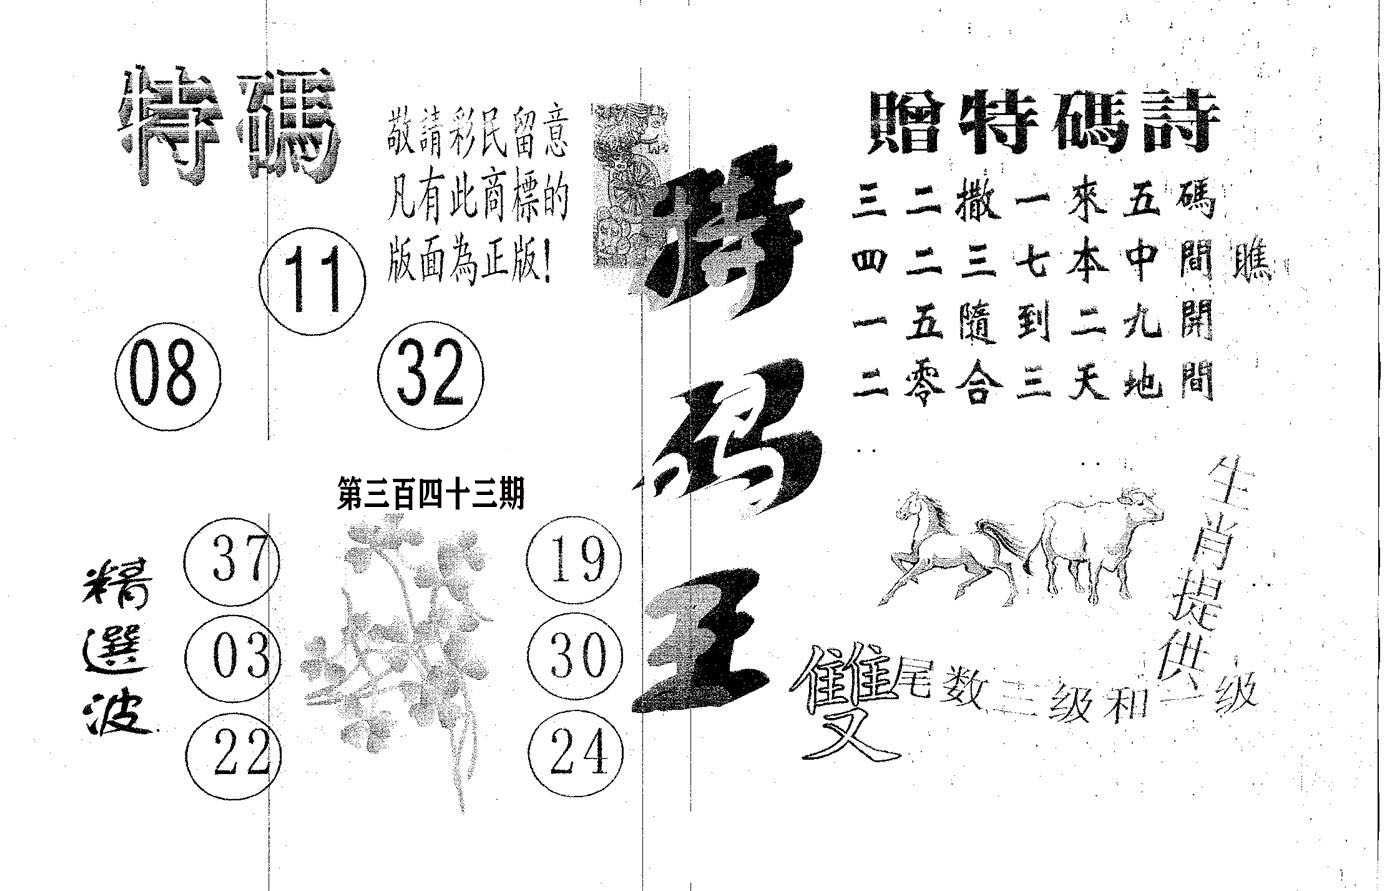 特碼
敬請彩民留意
凡有此商標的
版面為正版!
11
08
32
第三百四十三期
精選波
37
03
22
19
30
24
特码王
贈特碼詩
三二撒一來五碼
四二三七本中間瞧
一五隨到二九開
二零合三天地間
生肖提供
雙尾数二级和一级